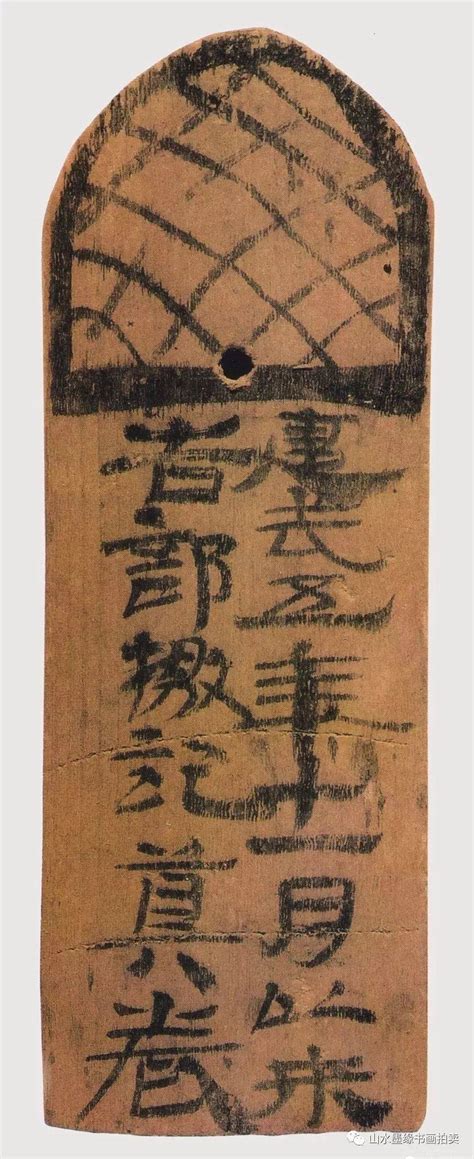 建武五年十一月以來
告部檄記算卷
山水墨缘书画拍卖